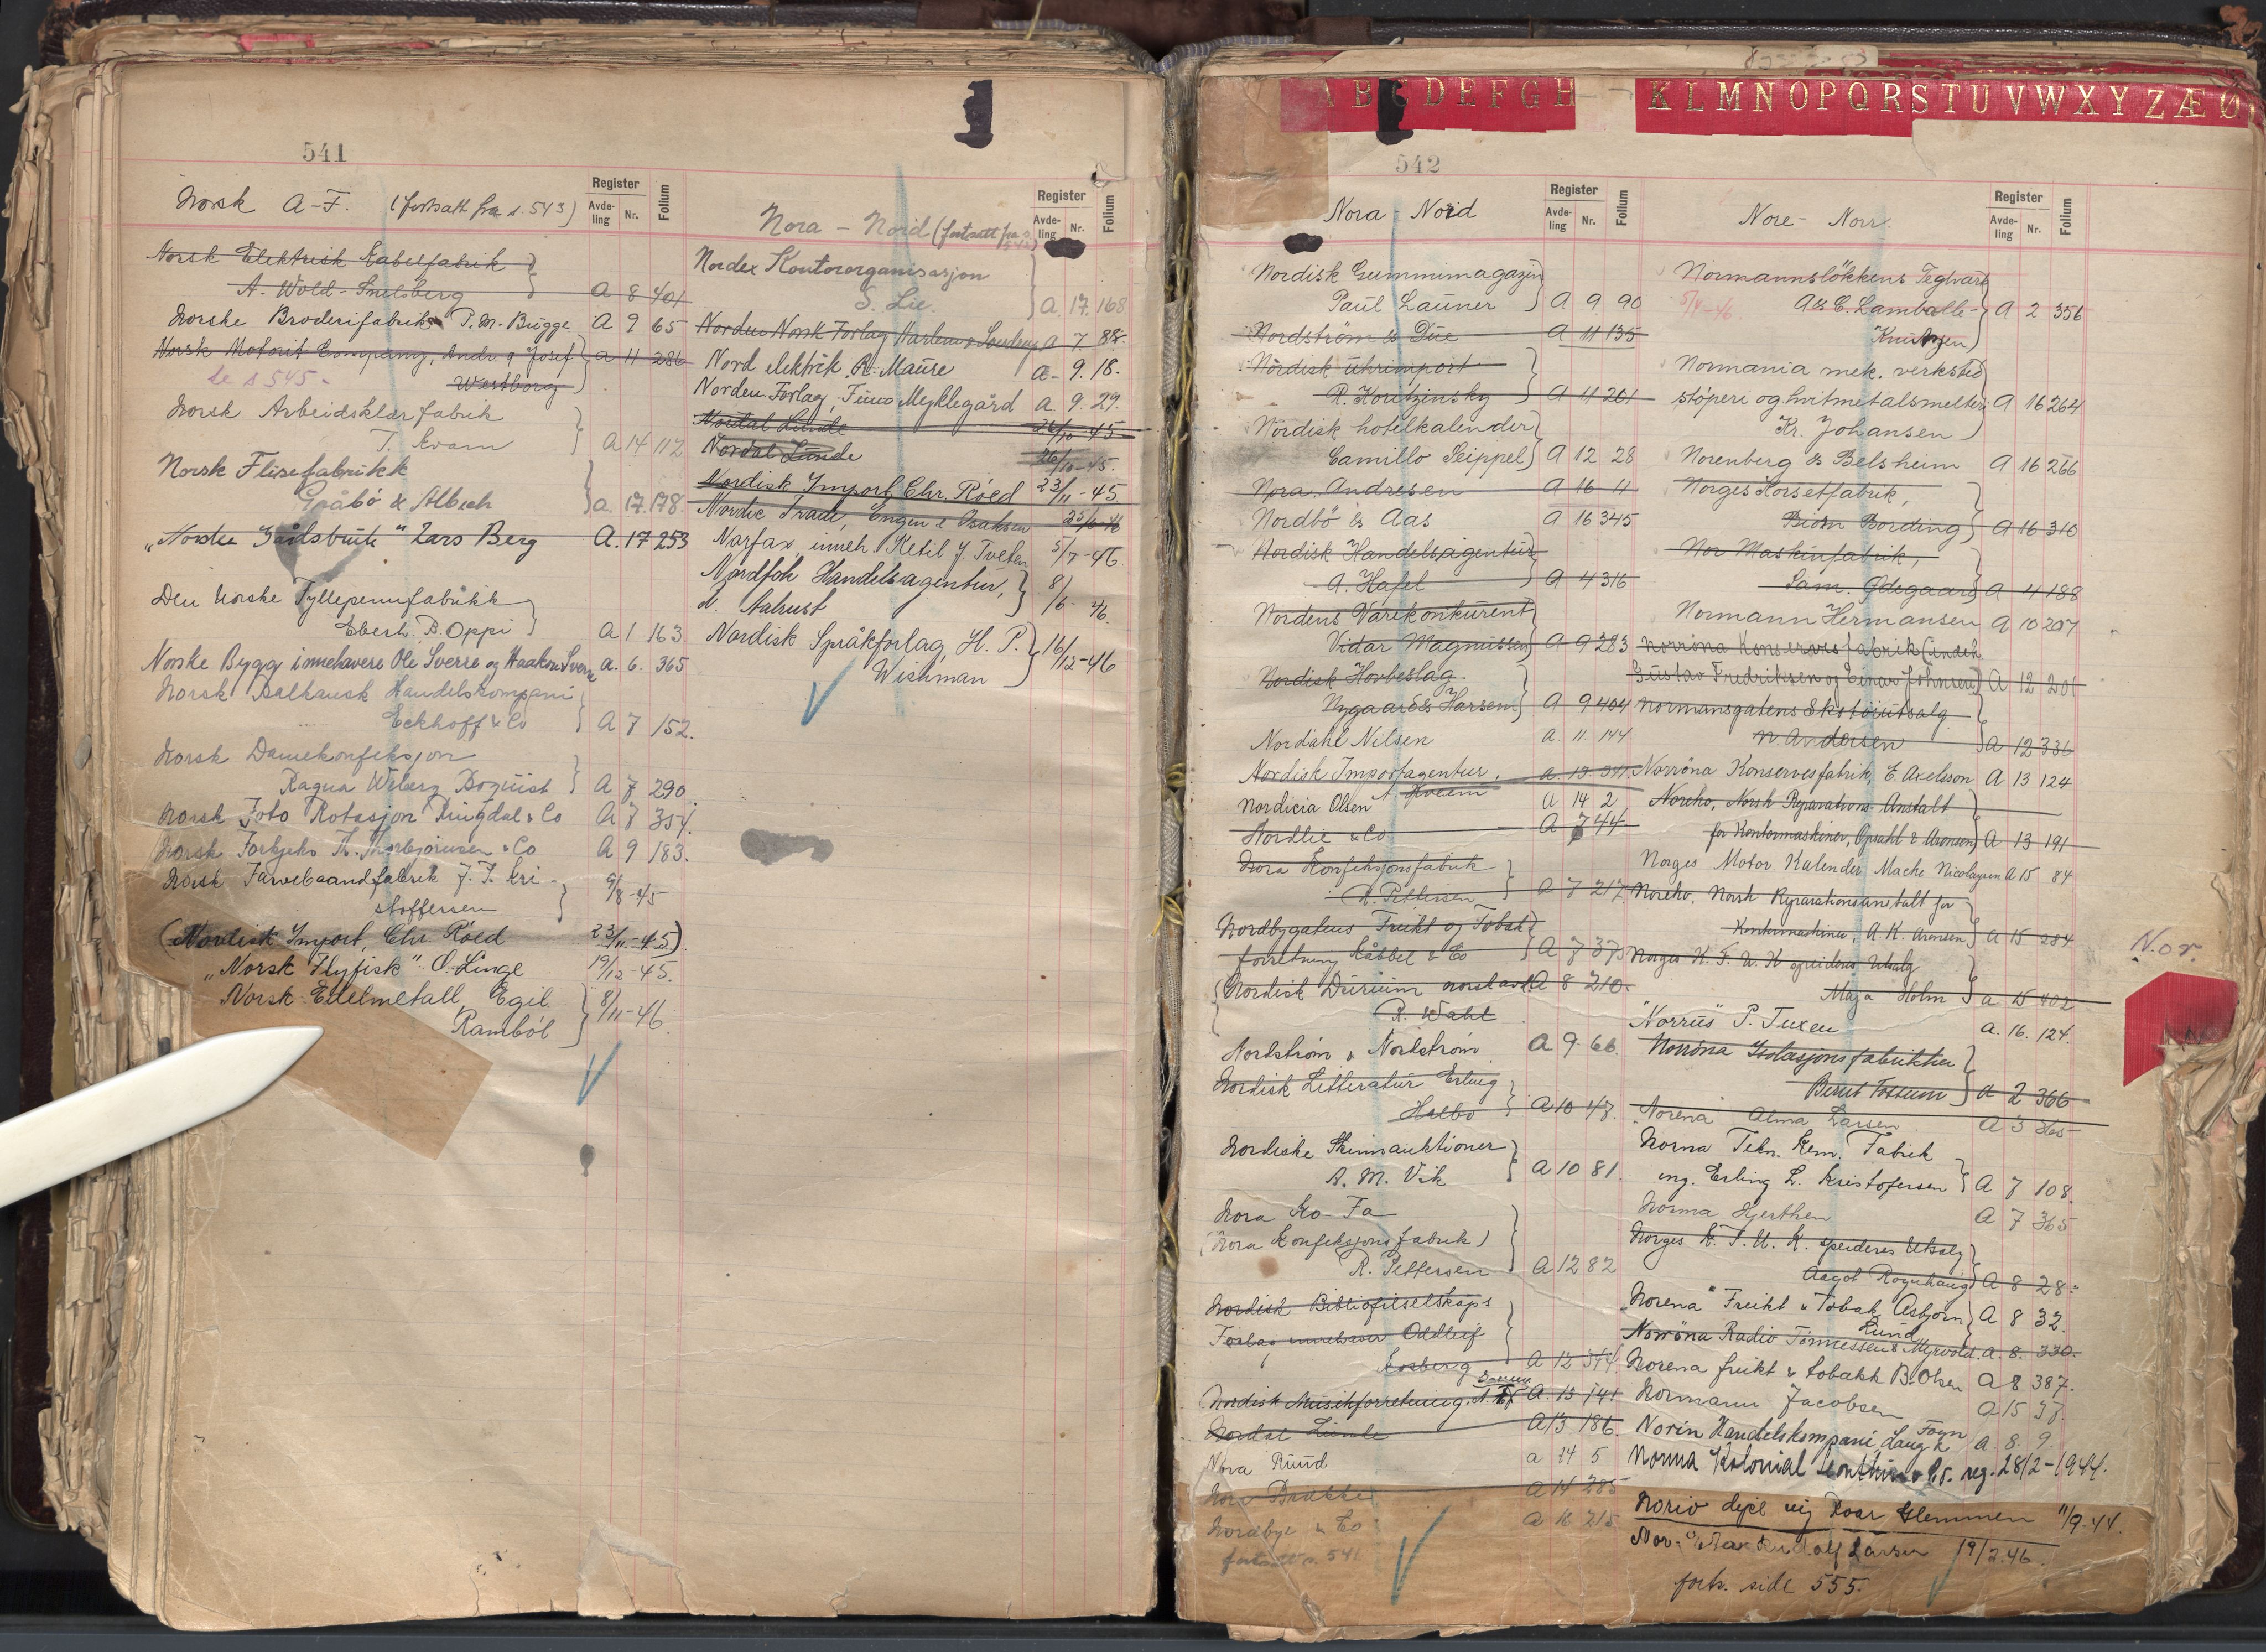 541
Norsk A-F. (fortsatt fra s. 543)
Register
Avde-ling Nr. Folium
Norsk Elektrisk Kabelfabrik
A. Wold-Snelsberg A 8 401
Norske Broderifabrik P.M. Bugge A 9 65
Norsk Motorit Company, Andr. & Josef
se s 545. Westborg A 11 286
Norsk Arbeidsklær fabrik
T. Kvam A 14 112
Norsk Flisefabrikk
Gråbö & Albech a. 17. 178.
Lars Berg A. 17 253
Den Norske Fyllepennfabrikk
Ebert B. Oppi A 1 163
Norske Bygg innehavere Ole Sverre og Haakon Sverre a. 6. 365
Norsk Balkansk Handelskompani
Eckhoff & Co A 7 152.
Norsk Damekonfeksjon
Ragna Wiberg Boquist A 7 290
Norsk Foto Rotasjon Ringdal & Co A 7 354.
Norsk & Co A 9 183.
Norsk Farvebaandfabrik J. T. Kri-
stoffersen 9/8-45
(Nordisk Import, Chr. Röed 23/11-45)
"Norsk Flyfisk" O. Linge 19/12-45.
Norsk Edelmetall, Egil
Ramböl 8/11-46
Nora - Nord (fortsatt fra s. 542)
Register
Avde-ling Nr. Folium
Nordex Kontororganisasjon
S. Lie. A. 17. 168
Norden Norsk Forlag A 7. 88.
Nord elektrik R. Maure a. 9. 18.
Norden Forlag, Finn Myklegård a. 9. 29.
Nordal Lunde 26/10-45
Nordal Lunde 26/10-45.
Nordisk Import, Chr. Röed 23/11-45.
Nordic Trade, Engen & Isaksen 25/6-46
Norfax, inneh. Ketil J. Tveten 5/7-46.
Nordfoh Handelsagentur,
d. Aahust 8/6-46.
Nordisk Språkforlag, H. P.
Wishman 16/12-46
A B C D E F G H K L M N O P Q R S T U V W X Y Z Æ Ø
542
Nora - Nord
Register
Avde-ling Nr. Folium
Nordisk Gummimagazin
Paul Launer A 9 90
Nordström & Due A 11 135
Nordisk Uhrimport
R. Koritzinsky A 11 201
Nordisk hotelkalender
Camillo Seippel A 12 28
Nora Andresen A 16 11
Nordbö & Aas A 16 345
Nordisk Handelsagentur
A. Hafel A 4 316
Nordens Varekonkurent
Vidar Magnussen A 9 283
Nordisk Hovbeslag.
Nygaard & Harsem A 9 404
Nordahl Nilsen a. 11. 144.
Nordisk Importagentur, Kveim a. 13. 341.
Nordicia Olsen A 14 2
Nordlie & Co A 7 44
Nora Konfeksjonsfabrik
R. Pettersen A 7 217
Nordbygatens Frukt og Tobak
forretning Kåbbel & Co A 7 375
Nordisk Durium norsk avd A 8 210.
R. Wahl
Nordström & Nordström A 9 66.
Nordisk Litteratur Erling
Halbo A 10 47.
Nordiske Skinnauktioner
A. M. Vik A 10 81.
Nora Ko-Fa
(Nora Konfeksjonsfabrik)
R. Pettersen A 12 82
Nordisk Bibliofilselskaps
Forlag innehaver Oddleif
Kosberg A 12 344
Nordisk Musikforretning. A. 13 141
Nordal Lunde A 13 186.
Nora Ruud a 14 5
Nora Brække A 14 285
Nordbye & Co a 16 215
fortsatt s. 541
Nore - Norr.
Register
Avde-ling Nr. Folium
Normannslökkens Teglverk
5/4-46 A & C. Lamballe-
Knutzen A 2 356
Normania mek. verksted
støperi og hvitmetalsmelteri A 16 264
Kr. Johansen
Norenberg & Belsheim A 16 266
Norges Korsetfabrik,
Bjørn Bording A 16 310
Nor Maskinfabrik,
Sam. Ødegaard A 4 188
Normann Hermansen A 10 207
Norröna Konservesfabrik (indeh.
Gustav Fredriksen og Einar Johnsen) A 12 201
Normannsgatens Skotöiutsalg
N. Andersen A 12 336
Norröna Konservesfabrik, E. Axelsson A 13 124
Noreko, Norsk Reparations-Anstalt
for Kontormaskiner, Opsahl & Aronsen A 13 191
Norges Motor Kalender Macke Nicolaysen A 15 84
Noreko. Norsk Reparationsanstalt for
Kontormaskiner, A. K. Aronsen A 15 284
Norges K.F.U.K. speideres Utsalg
Maja Holm a 15 402
"Norrus" P. Tuxen a. 16. 124.
Norröna Isolasjonsfabrikker
Bernt Tottum A 2 366
Norena Alma Larsen A 3 365
Norna Tekn. Kem. Fabrik
ing. Erling L. Kristofersen A 7 108.
Norma Hjerthen A 7 365
Norges K.F.U.K. speideres Utsalg
Aagot Rognhaug A 8 28.
"Norena" Frukt & Tobak Asbjørn
Lund A 8 32.
Norröna Radio Tönnessen & Myrvold. A. 8. 330.
Norena frukt & tobakk B. Olsen A 8 387.
Normann Jacobsen A 15 37.
Norin Handelskompani, a. 8. 9
Norma Kolonial reg. 28/2-1944.
Norio dipl. ing Roar Glemmen 11/9-44.
Nor- Rudolf Larsen 19/2.46.
forts. side 555.
Nor.